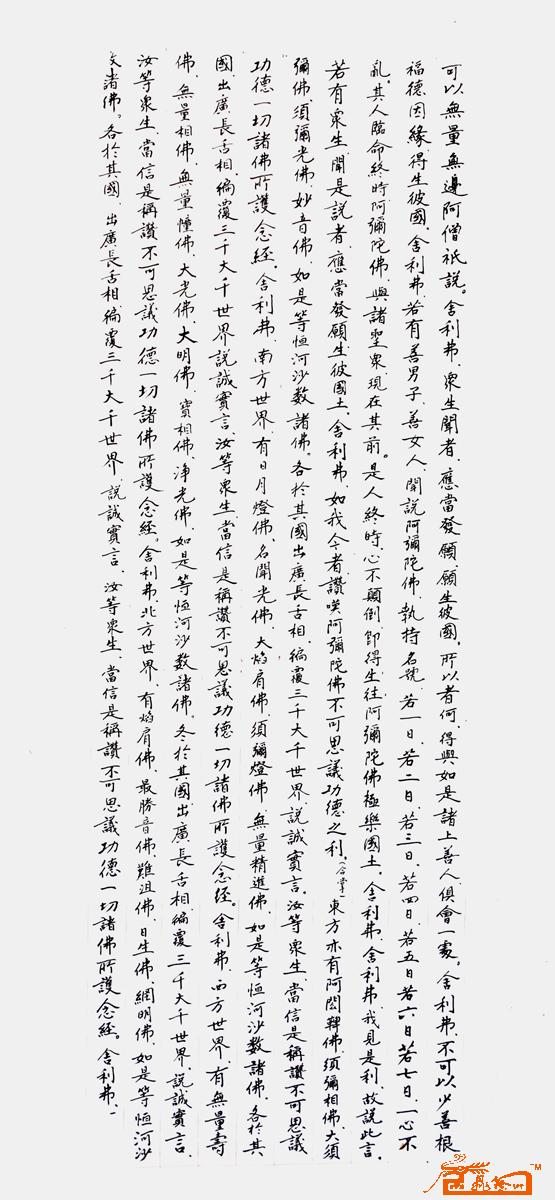 可以無量無邊阿僧祇說。舍利弗、衆生聞者、應當發願、願生彼國、所以者何、得與如是諸上善人俱會一處。舍利弗、不可以少善根
福德因緣、得生彼國、舍利弗、若有善男子、善女人、聞說阿彌陀佛、執持名號、若一日、若二日、若三日、若四日、若五日若六日若七日、一心不
亂、其人臨命終時阿彌陀佛、與諸聖衆、現在其前。是人終時、心不顛倒、即得生往、阿彌陀佛極樂國土。舍利弗、舍利弗、我見是利、故說此言。
若有衆生、聞是說者、應當發願生彼國土。舍利弗、如我今者、讚嘆阿彌陀佛、不可思議功德之利。（合掌）東方亦有阿閦鞞佛、須彌相佛、大須
彌佛、須彌光佛、妙音佛、如是等恒河沙數諸佛。各於其國出廣長舌相、徧覆三千大千世界、說誠實言、汝等衆生、當信是稱讚不可思議
功德一切諸佛所護念經。舍利弗、南方世界、有日月燈佛、名聞光佛、大焰肩佛、須彌燈佛、無量精進佛、如是等恒河沙數諸佛、各於其
國、出廣長舌相、徧覆三千大千世界說誠實言、汝等衆生當信是稱讚不可思議功德一切諸佛所護念經。舍利弗、西方世界、有無量壽
佛、無量相佛、無量幢佛、大光佛、大明佛、寶相佛、淨光佛、如是等恒河沙數諸佛、各於其國出廣長舌相、徧覆三千大千世界、說誠實言、
汝等衆生、當信是稱讚不可思議功德一切諸佛所護念經。舍利弗、北方世界、有焰肩佛、最勝音佛、難沮佛、日生佛、網明佛、如是等恒河沙
數諸佛。各於其國、出廣長舌相徧覆三千大千世界、說誠實言、汝等衆生、當信是稱讚不可思議功德一切諸佛所護念經。舍利弗、